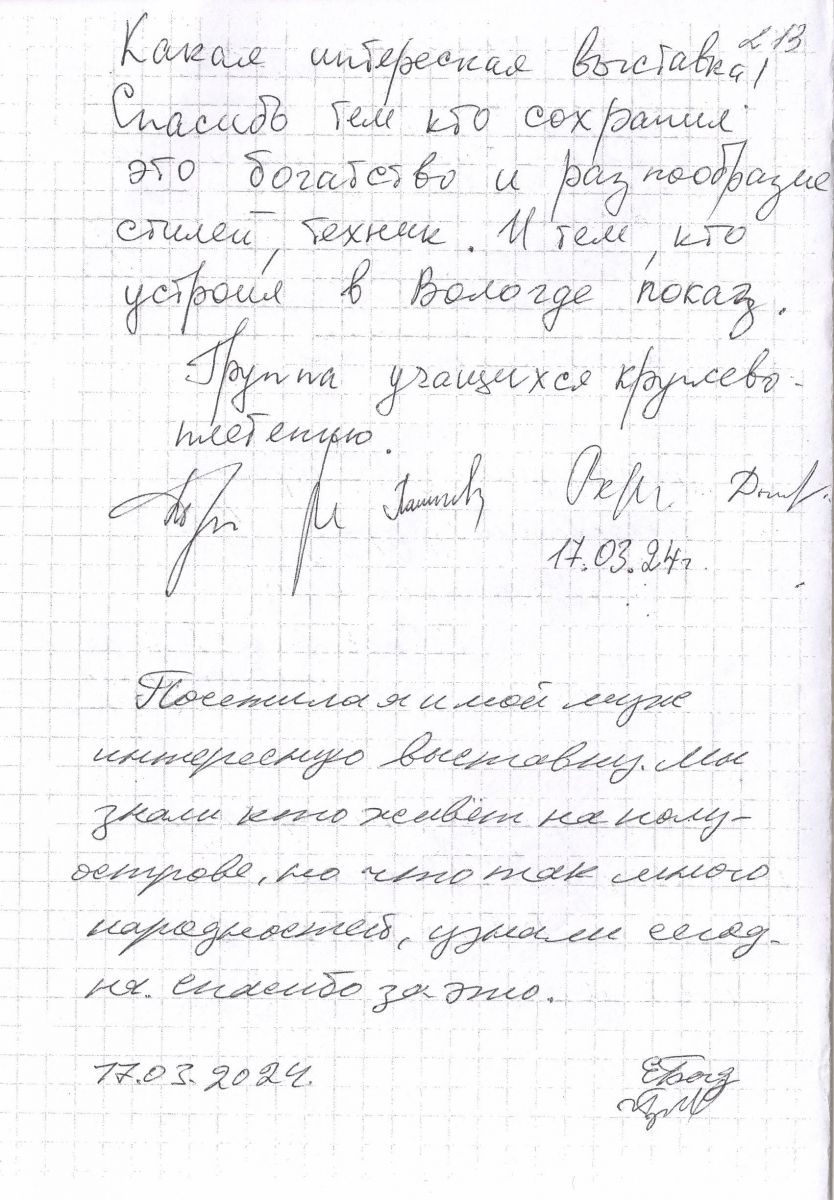 213
Какая интересная выставка!
Спасибо тем кто сохранил
это богатство и разнообразие
стилей, техник. И тем, кто
устроил в Вологде показ.
Группа учащихся кружево-
плетению.
17.03.24г.
Посетила я и мой муж
интересную выставку. Мы
знали кто живёт на полу-
острове, но что так много
народностей, узнали сегод-
ня. Спасибо за это.
17.03.2024.